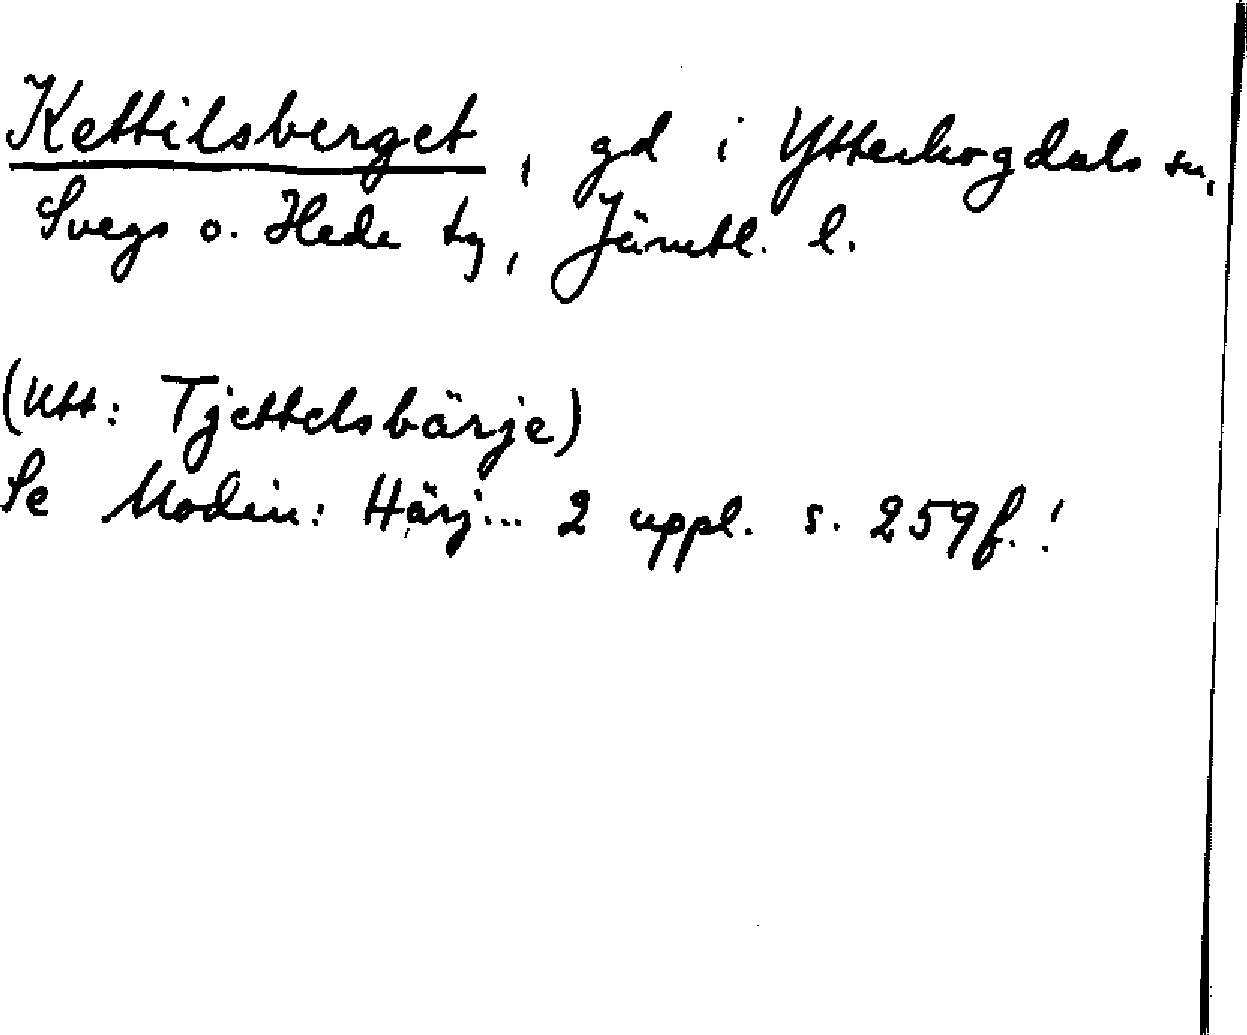 Kettilsberget, gd i Ytterhogdals sn,
Svegs o. Hede tg, Jämtl. l.
(Utt: Tjettelsbärje)
Se Modin: Härj... 2 uppl. s. 259f.!